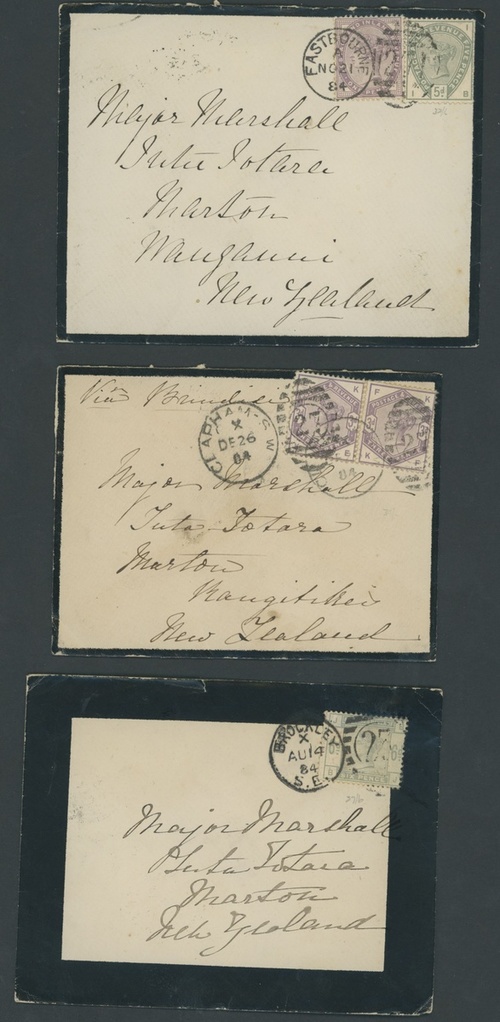 EASTBOURNE
A
NO 21
84
5d
I
I B
Major Marshall
Tutu Totara
Marton
Wanganui
New Zealand
Via Brindisi
CLAPHAM·S.W
X
DE 26
84
K F K
Major Marshall
Tutu Totara
Marton
Rangitikei
New Zealand
BROCKLEY
X
AU 14
84
S.E.
Major Marshall
Tutu Totara
Marton
New Zealand